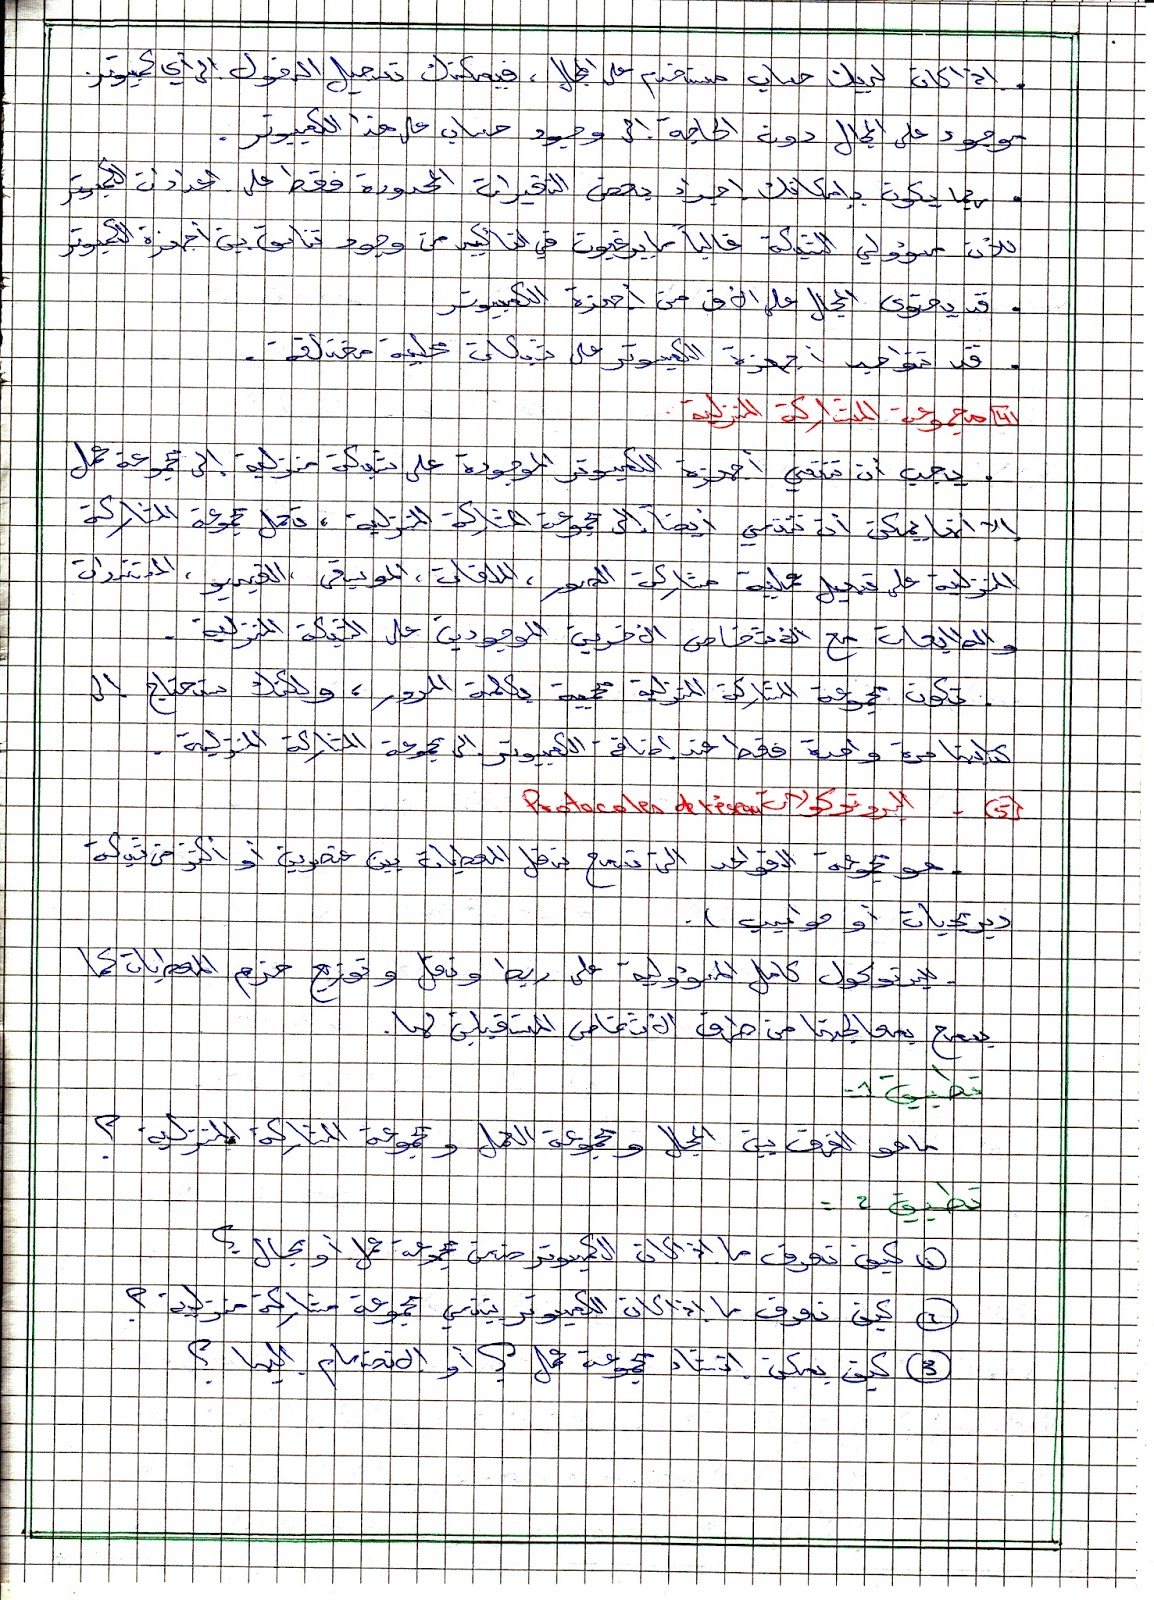 . إذا كان لديك حساب مستخدم على المجال ، فيمكنك تسجيل الدخول إلى أي كمبيوتر
موجود على المجال دون الحاجة إلى وجود حساب على هذا الكمبيوتر .
. ربما يكون بإمكانك إجراء بعض التغيرات المحدودة فقط على اعدادات الكمبيوتر
للأن مسؤولي الشبكة غالباً ما يرغبون في التأكيد من وجود تناسق بين أجهزة الكمبيوتر
. قد يحتوى المجال على الأف من أجهزة الكمبيوتر
. قد تتواجد أجهزة الكمبيوتر على شبكات محلية مختلفة .
4) مجموعة المشاركة المنزلية .
. يجب أن تنتمي أجهزة الكمبيوتر الموجودة على شبكة منزلية إلى مجموعة عمل
إلا أنها يمكن أن تنتمي أيضاً إلى مجموعة المشاركة المنزلية ، تعمل مجموعة المشاركة
المنزلية على تسهيل عملية مشاركة الصور ، الملفات ، الموسيقى ، الفيديو ، المستندات
والطابعات مع الأشخاص الأخرين الموجودين على الشبكة المنزلية .
. تكون مجموعة المشاركة المنزلية محمية بكلمة المرور ، ولكنك ستحتاج إلى
كتابتها مرة واحدة فقط عند إضافة الكمبيوتر إلى مجموعة المشاركة المنزلية .
5) - البروتوكولات Protocoles de réseau
. هو مجموعة القواعد التى تسمح بنقل المعطيات بين عنصرين أو أكثر من شبكة
(برمجيات أو حواسيب ).
- للبرتوكول كامل المسؤولية على ربط ونقل و توزيع حزم المعطيات كما
يسمح بمعالجتها من طرف الأشخاص المستقبلين لها.
تطبيق 1 =
ما هو الفرق بين المجال و مجموعة العمل و مجموعة المشاركة المنزلية ؟
تطبيق 2 =
1 كيف تعرف ما إذا كان الكمبيوتر ضمن مجموعة عمل أو مجال ؟
2 كيف تعرف ما إذا كان الكمبيوتر ينتمي مجموعة مشاركة منزلية ؟
3 كيف يمكن إنشاء مجموعة عمل ؟ أو الانضمام إليها ؟